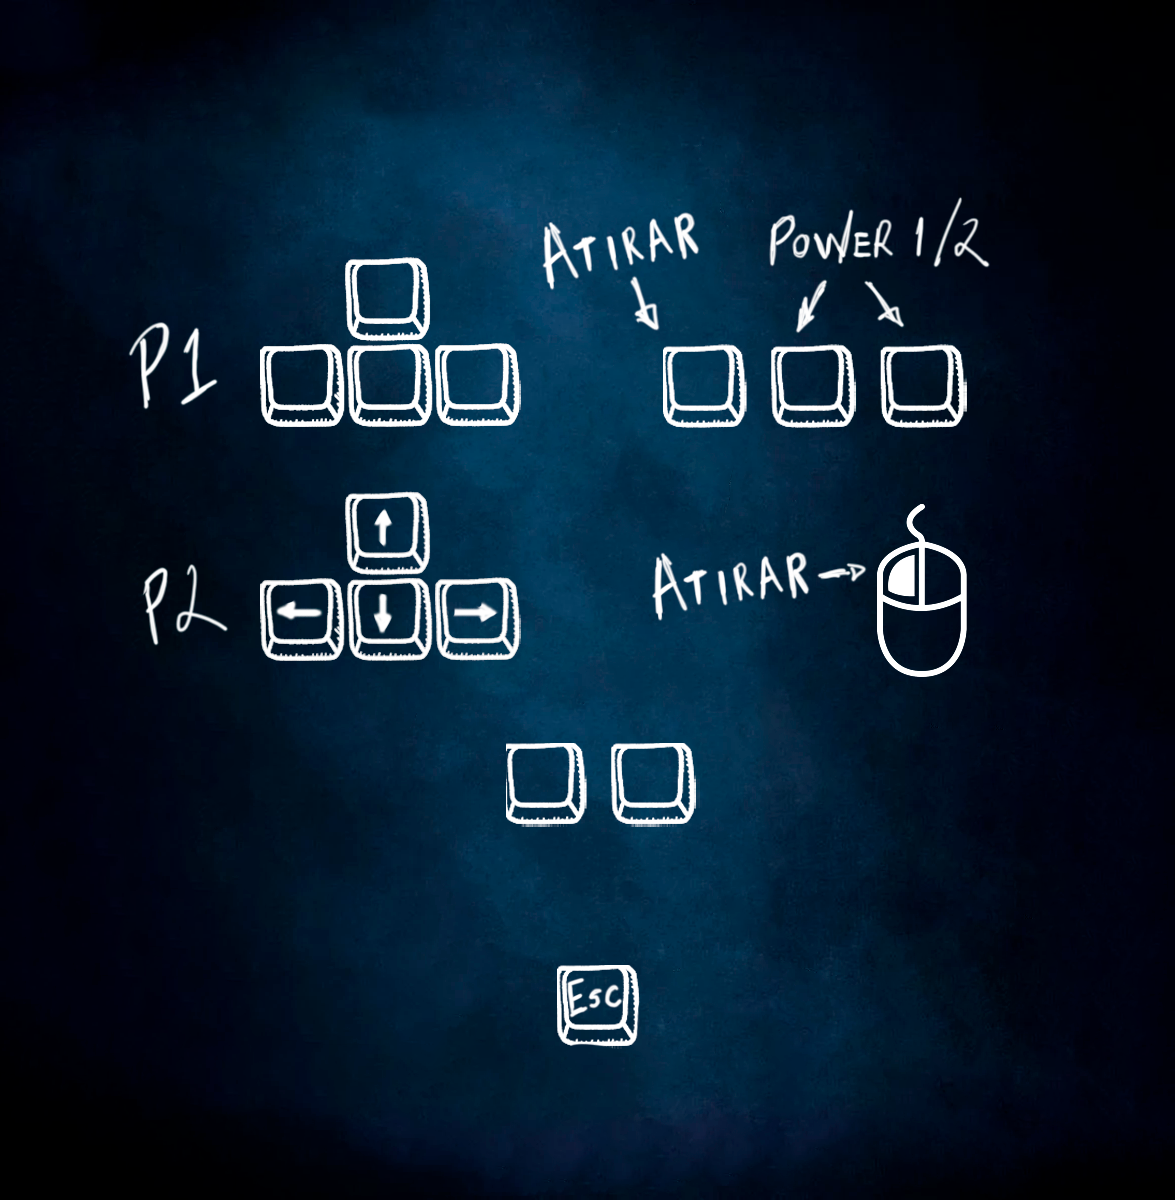 ATIRAR
POWER 1/2
P1
P2
ATIRAR
Esc